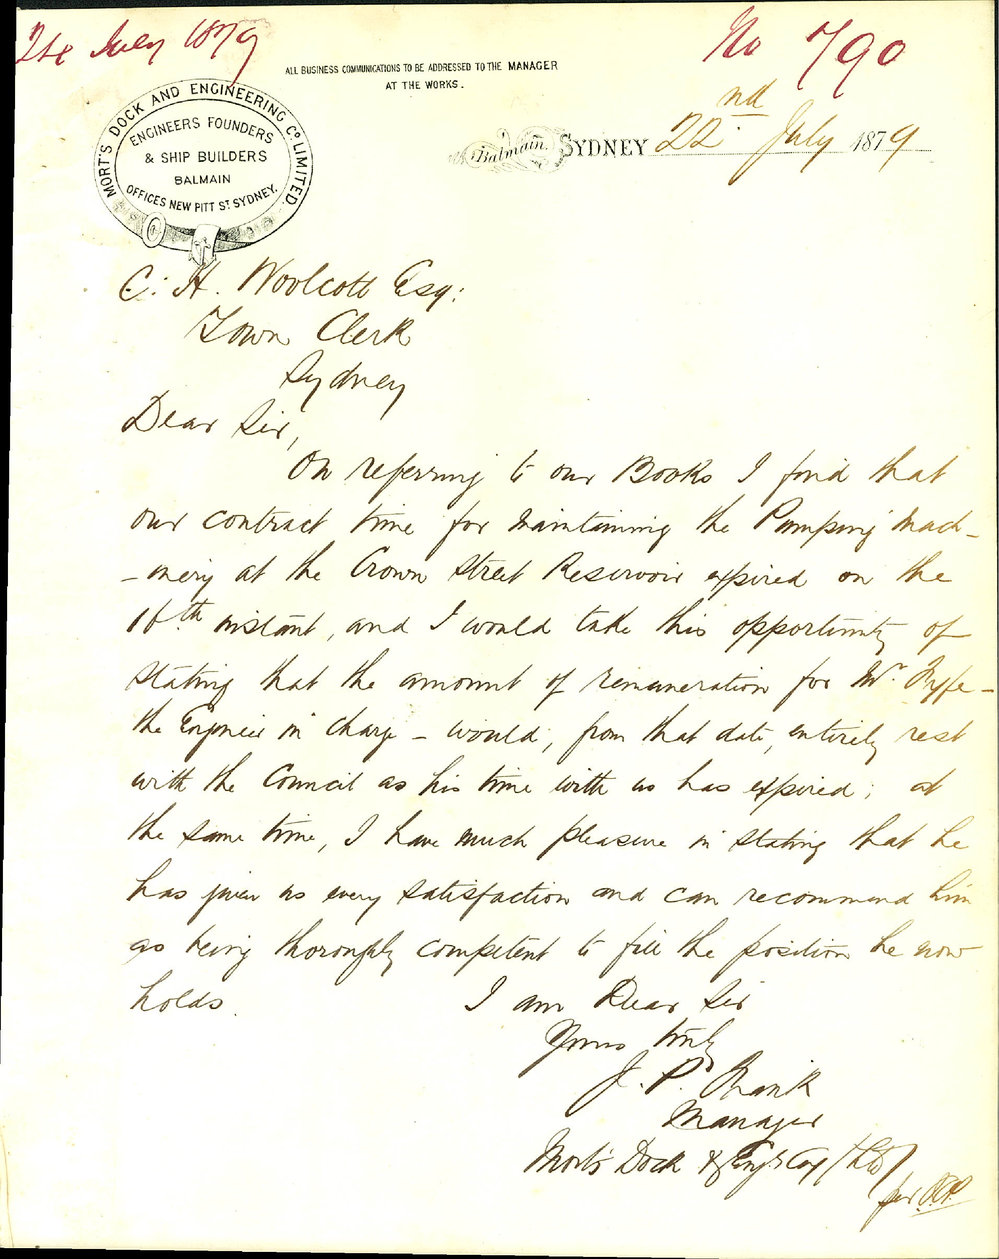 24 July 1879
No 790
ALL BUSINESS COMMUNICATIONS TO BE ADDRESSED TO THE MANAGER
AT THE WORKS.
MORT'S DOCK AND ENGINEERING Co. LIMITED.
ENGINEERS FOUNDERS
& SHIP BUILDERS
BALMAIN
OFFICES NEW PITT ST. SYDNEY.
Balmain, SYDNEY 22nd July 1879
C. H. Woolcott Esq:
Town Clerk
Sydney
Dear Sir,
On referring to our Books I find that
our contract time for maintaining the Pumping Mach-
-inery at the Crown Street Reservoir expired on the
16th instant, and I would take this opportunity of
stating that the amount of remuneration for Mr. Fyffe -
the Engineer in charge - would, from that date, entirely rest
with the Council as his time with us has expired; at
the same time, I have much pleasure in stating that he
has given us every satisfaction and can recommend him
as being thoroughly competent to fill the position he now
holds.
I am Dear Sir
Yours truly
J. P. Frank
Manager
Mort's Dock & Eng. Coy (Ltd)
per